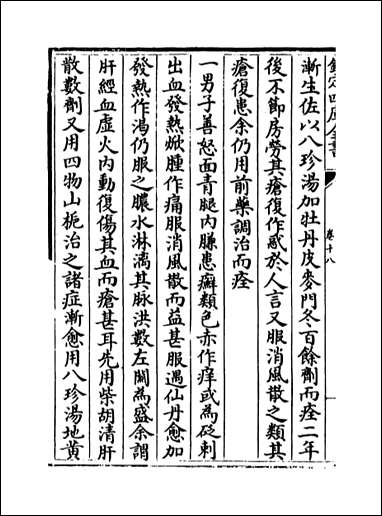 欽定四庫全書
卷十八
漸生佐以八珍湯加牡丹皮麥門冬百餘劑而痊二年
後不節房勞其瘡復作惑於人言又服消風散之類其
瘡復患余仍用前藥調治而痊
一男子善怒面青腿內臁患癬類色赤作痒或為砭刺
出血發熱焮腫作痛服消風散而益甚服遇仙丹愈加
發熱作渴仍服之膿水淋漓其脉洪數左關為盛余謂
肝經血虛火內動復傷其血而瘡甚耳先用柴胡清肝
散數劑又用四物山梔治之諸症漸愈用八珍湯地黃